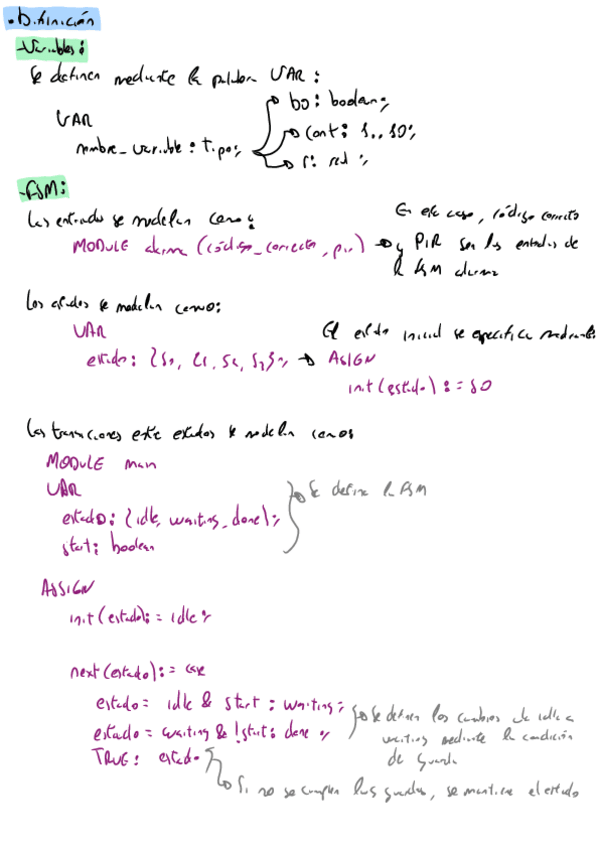 ·Definición
-Variables:
Se definen mediante la palabra VAR:
bo: boolean;
VAR
cont: 1..10;
nombre_variable: tipo;
r: red;
-FSM:
Las entradas se modelan como:
En ese caso, código correcto
MODULE alarma (código_correcto, pir)
y PIR son las entradas de
la FSM alarma
Los estados se modelan como:
VAR
El estado inicial se especifica mediante:
estado: {S0, S1, S2, S3};
ASSIGN
init(estado) := S0
Las transiciones entre estados se modelan como:
MODULE main
VAR
Se define la FSM
estado: {idle, waiting, done};
start: boolean
ASSIGN
init(estado) := idle;
next(estado) := case
estado = idle & start : waiting;
Se definen los cambios de idle a
estado = waiting & !start: done;
waiting mediante la condición
TRUE: estado
de guarda
Si no se cumplen las guardas, se mantiene el estado